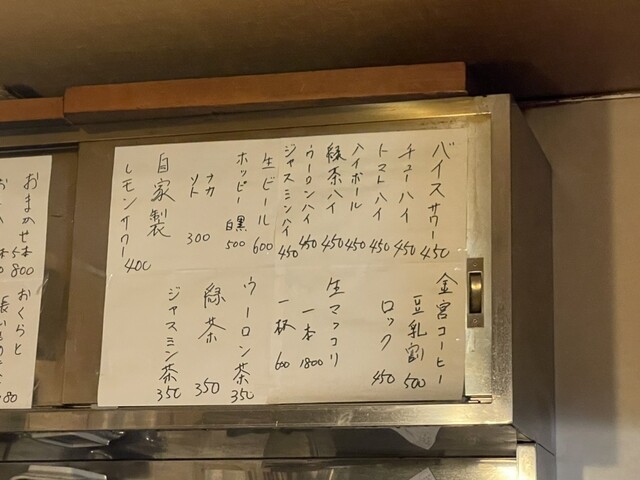 バイスサワー 450
チューハイ 450
トマトハイ 450
ハイボール 450
緑茶ハイ 450
ウーロンハイ 450
ジャスミンハイ 450
生ビール 600
ホッピー 白黒 500
ナカ 300
ソト
自家製
レモンサワー 400
金宮コーヒー
豆乳割 500
ロック 450
生マッコリ
一本 1800
一杯 600
ウーロン茶 350
緑茶 350
ジャスミン茶 350
おまかせ
5本 800
おくらと